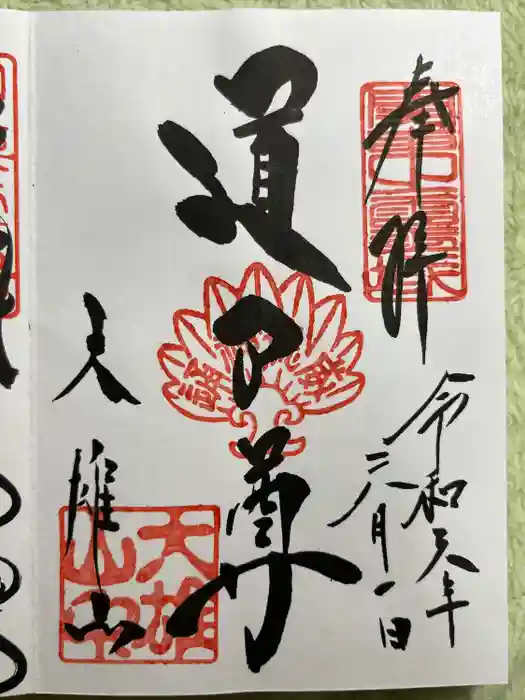 奉拝
令和元年
六月一日
道了尊
大雄山
大雄
山印